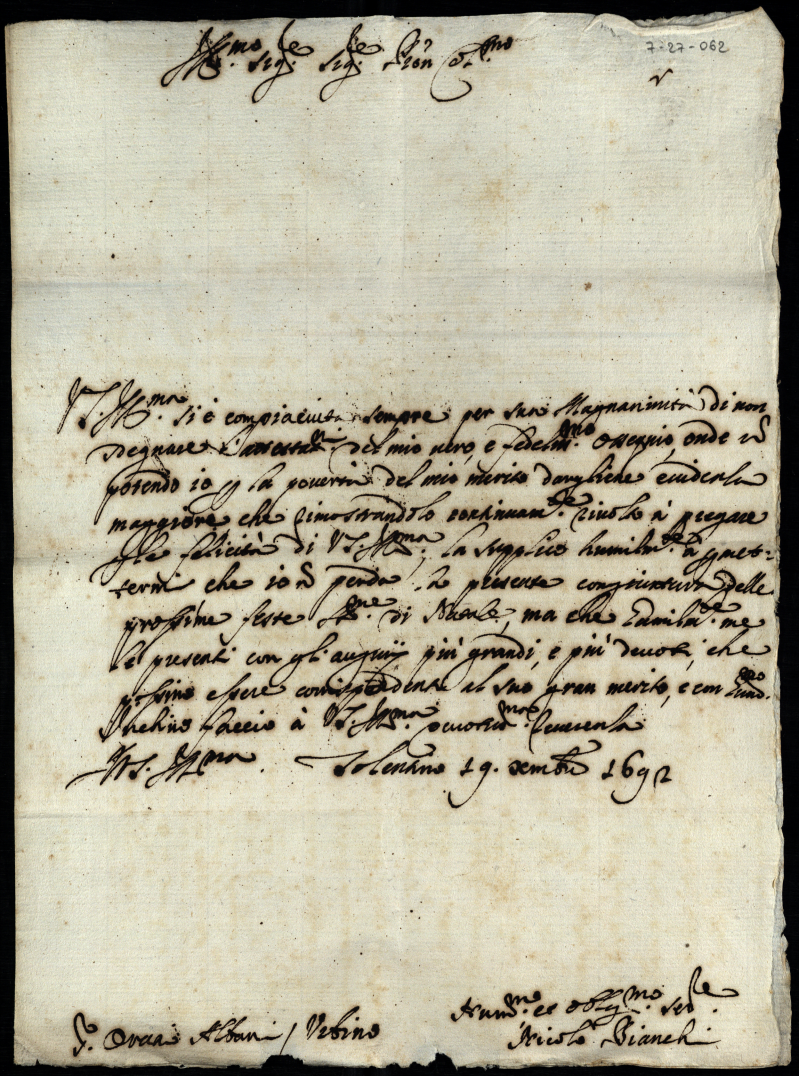 Ill.mo Sig.re Sig.re Pron Col.mo
7-27-062
V.S. Ill.ma si è compiaciuta sempre per sua Magnanimità di non
sdegnare del mio vero, e fedeliss.mo ossequio, onde nō
potendo io p la povertà del mio merito dargliene evidenza
maggiore che rimostrandolo continuam.te rivolto à pregare
felicità di V.S. Ill.ma, la supplico humilm.te à pmet-
termi che io nō perda la presente congiuntura delle
prossime feste SS.me di Natale, ma che humilm.te me
le presenti con gli augurij più grandi, e più devoti, che
possino essere corrispondenti al suo gran merito, e con
faccio à V.S. Ill.ma reverenza
V.S. Ill.ma Tolentino 19. Xembre 1692
S.r Orazio Albani / Urbino
Hum.mo et obblig.mo ser.re
Nicolò Bianchi